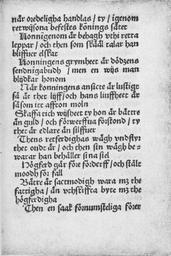 när oredeligha handlas / ty / igenom
retwijsona befestes konings säter
Konnigenom är behagh vthi retta
leppar / och then som skääl talar han
bliffuer elskat
Konningens grymheet är dödzens
sendningabudh / men en wijs man
blijdkar honom
När konningens ansicte är lustigt
så är thet lijff / och hans liuffheet är
såsom itt affton moln
Skaffa tich wijsheet ty hon är bättre
än guld / och förwerffua förstond / ty
thet är edlare än silffuer
Thens retferdighas wägh vndflyr
thet onde är / och then sin wägh be-
warar han behåller sina siel
Högferd går före förderff / och stålt
moodh för fall
Bätre är sactmodigh wara mz the
fattigha / än vthskiffta byte mz the
högferdigha
Then en saak förnumsteliga föret